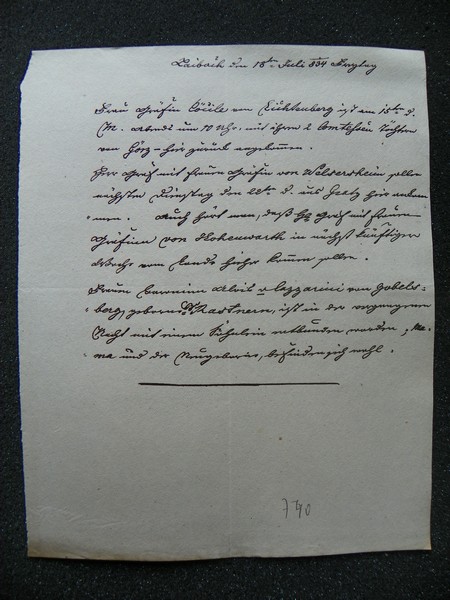 Laibach den 18ten Juli 834 Freytag
Frau Gräfin Cécile von Lichtenberg ist am 15ten d.
M. Abends um 10 Uhr, mit ihren 2 Comtessen Töchter
von Görz hier zurück angekommen.
Der Graf mit Frauen Gräfin von Welsersheim sollen
nächsten Dienstag den 22ten d. aus Gratz hier ankom-
men. Auch hört man, daß Hr Graf mit Frauen
Gräfinen von Hohenwarth in nächst künftiger
Woche vom Lande hieher kommen sollen.
Frauen Baroninn Alois v Lazzarini von Gobels-
berg, geborne Kastnern, ist in der vergangenen
Nacht mit einem Fäulein entbunden worden, Ma-
ma und der Neugeborne, befinden sich wohl.
740